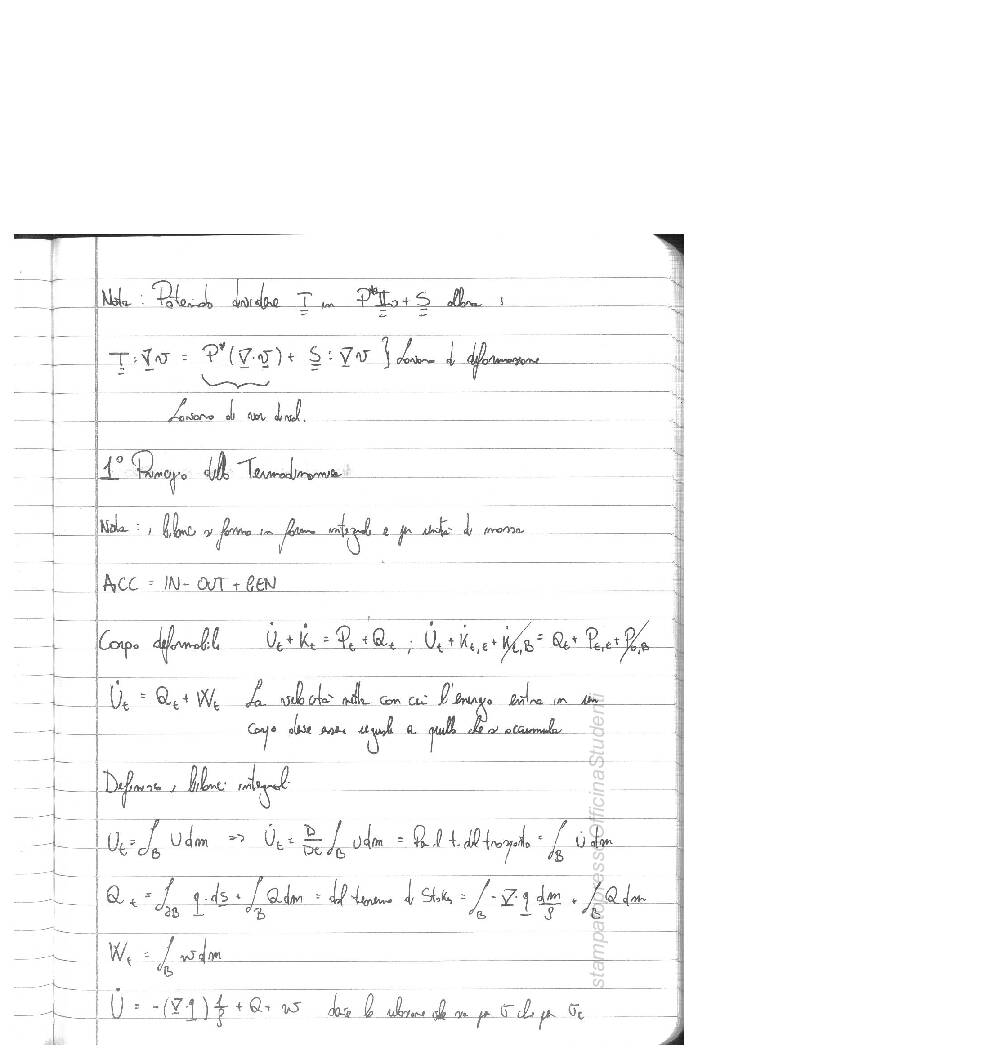 Nota : Potendo dividere T in P*I + S allora :
T : ∇v = P*(∇·v) + S : ∇v } Lavoro di deformazione
Lavoro di var di vol.
1° Principio della Termodinamica
Nota : i bilanci si fanno in forma integrale e per unità di massa
ACC = IN - OUT + GEN
Corpo deformabile U̇t + K̇t = Pt + Qt ; U̇t + K̇t,E + K̇t,B = Qt + Pt,E + Pt,B
U̇t = Qt + Wt La velocità netta con cui l'energia entra in un
corpo deve esser uguale a quella che si accumula
Definire i bilanci integrali
Ut = ∫B U dm => U̇t = D/Dt ∫B U dm = Per il t. del trasporto = ∫B U̇ dm
Qt = ∫∂B q · ds + ∫B Q dm = dal teorema di Stokes = ∫B - ∇·q dm/ρ + ∫B Q dm
Wt = ∫B w dm
U̇ = -(∇·q) 1/ρ + Q + w
stampato presso OfficinaStudenti